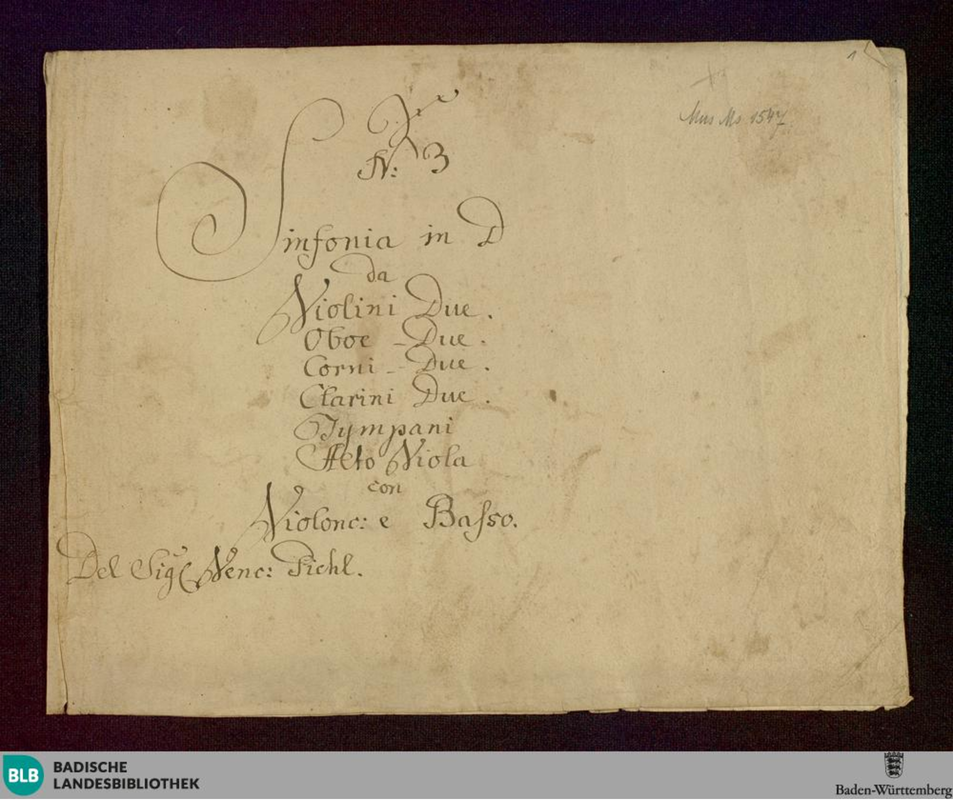 1
Mus Ms 1547
N: 3
Sinfonia in D
da
Violini Due.
Oboe - Due.
Corni - Due.
Clarini Due.
Tympani
Alto Viola
con
Violonc: e Basso.
Del Sigr Wenc: Pichl.
BLB
BADISCHE
LANDESBIBLIOTHEK
Baden-Württemberg